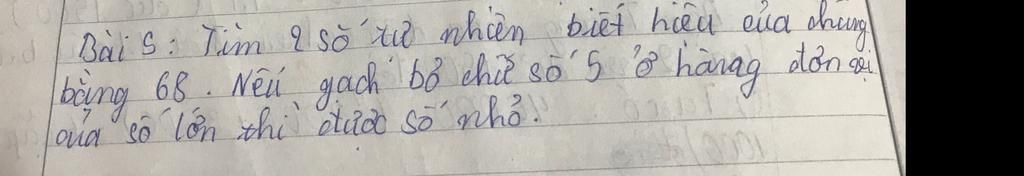 Bài 5: Tìm 2 số tự nhiên biết hiệu của chúng
bằng 68. Nếu gạch bỏ chữ số 5 ở hàng đơn vị
của số lớn thì được số nhỏ.